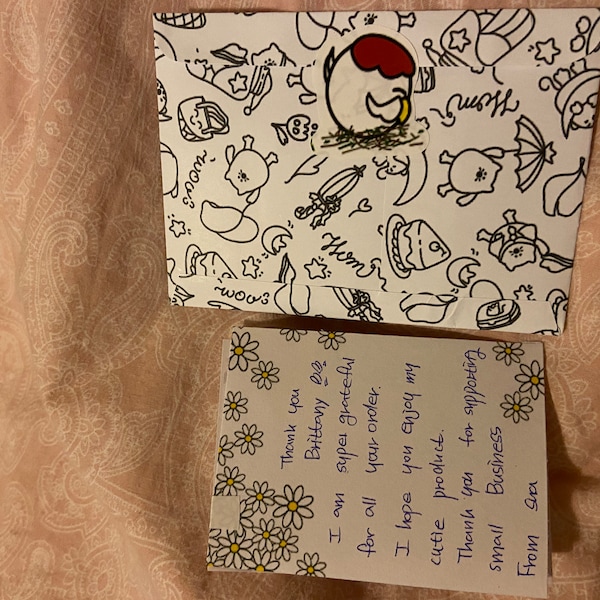 Thank you
Brittany
I am super grateful
for all your order.
I hope you enjoy my
cutie product.
Thank you for supporting
small Business
From